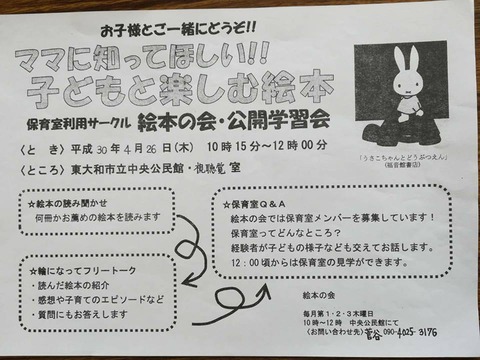 お子様とご一緒にどうぞ!!
ママに知ってほしい!!
子どもと楽しむ絵本
保育室利用サークル 絵本の会・公開学習会
〈と き〉平成30年4月26日(木) 10時15分～12時00分
〈ところ〉東大和市立中央公民館・視聴覚室
「うさこちゃんとどうぶつえん」
(福音館書店)
☆絵本の読み聞かせ
何冊かお薦めの絵本を読みます
☆輪になってフリートーク
・読んだ絵本の紹介
・感想や子育てのエピソードなど
・質問にもお答えします
☆保育室Q＆A
絵本の会では保育室メンバーを募集しています！
保育室ってどんなところ？
経験者が子どもの様子なども交えてお話します。
12：00頃からは保育室の見学ができます。
絵本の会
毎月第1・2・3木曜日
10時～12時 中央公民館にて
〈お問い合わせ先〉菅谷 090-4025-3176